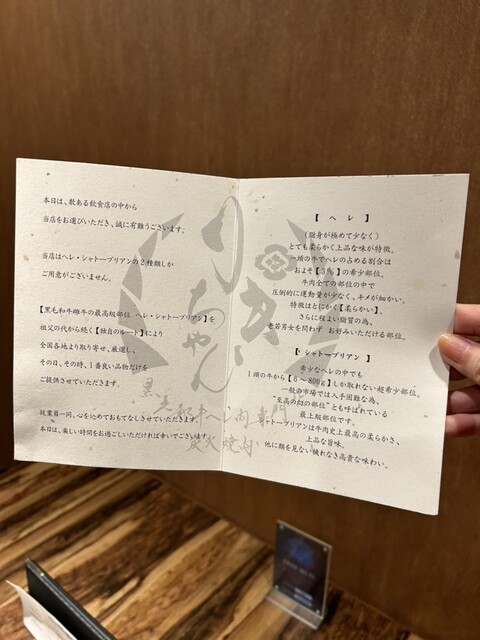 本日は、数ある飲食店の中から
当店をお選びいただき、誠に有難うございます。
当店はヘレ・シャトーブリアンの2種類しか
ご用意がございません。
【黒毛和牛雌牛の最高級部位 ヘレ・シャトーブリアン】を
祖父の代から続く【独自のルート】により
全国各地より取り寄せ、厳選し、
その日、その時、1番良い品物だけを
ご提供させていただきます。
従業員一同、心を込めておもてなしさせていただきます。
本日は、楽しい時間をお過ごしいただければ幸いでございます。
【 ヘ レ 】
(脂身が極めて少なく)
とても柔らかく上品な味が特徴。
一頭の牛でヘレの占める割合は
およそ【3%】の希少部位。
牛肉全ての部位の中で
圧倒的に運動量が少なく、キメが細かい。
特徴はとにかく【柔らかい】。
さらに程よい脂質の為、
老若男女を問わず お好みいただける部位。
【 シャトーブリアン 】
希少なヘレの中でも
1頭の牛から【6~800g】しか取れない超希少部位。
一般の市場では入手困難な為、
"至高の幻の部位"とも呼ばれている
最上級部位。
シャトーブリアンは牛肉史上最高の柔らかさ、
上品な旨味。
他に類を見ない穢れなき高貴な味わい。
ちゃん
黒
牛ヘレ肉専門
炭火焼肉